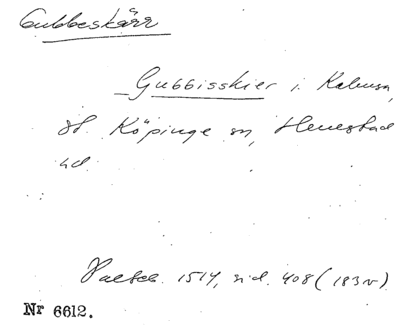 Gubbeskärr
Gubbisskier i Kabusa,
St. Köpinge sn, Herrestad
hd.
Palteb. 1514, sid. 408 (183v)
Nr 6612.